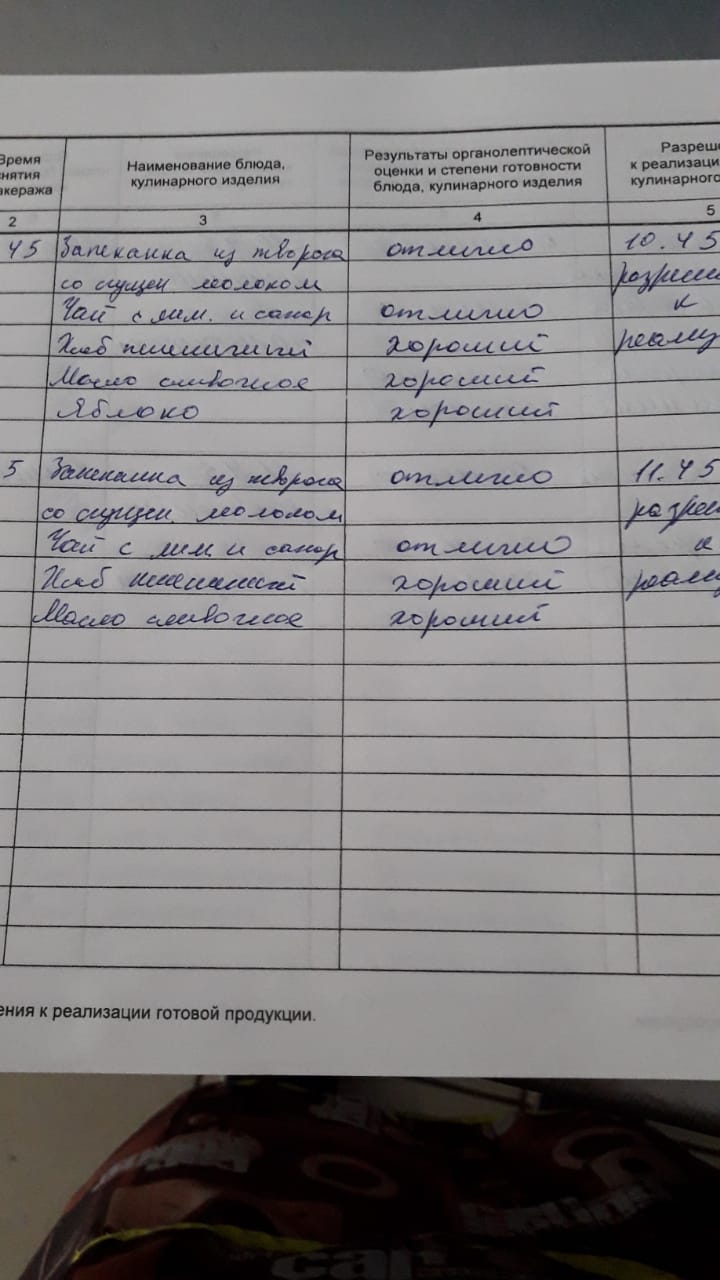 Время
нятия
акеража
Наименование блюда,
кулинарного изделия
Результаты органолептической
оценки и степени готовности
блюда, кулинарного изделия
Разреше
к реализаци
кулинарного
2 3 4 5
45 Запеканка из творога отлично 10.45
со сгущен. молоком разреш
Чай с лим. и сахар отлично к
Хлеб пшеничный хороший реализ
Масло сливочное хороший
Яблоко хороший
5 Запеканка из творога отлично 11.45
со сгущен. молоком разреш
Чай с лим и сахар отлично к
Хлеб пшеничный хороший реализ
Масло сливочное хороший
ения к реализации готовой продукции.
car